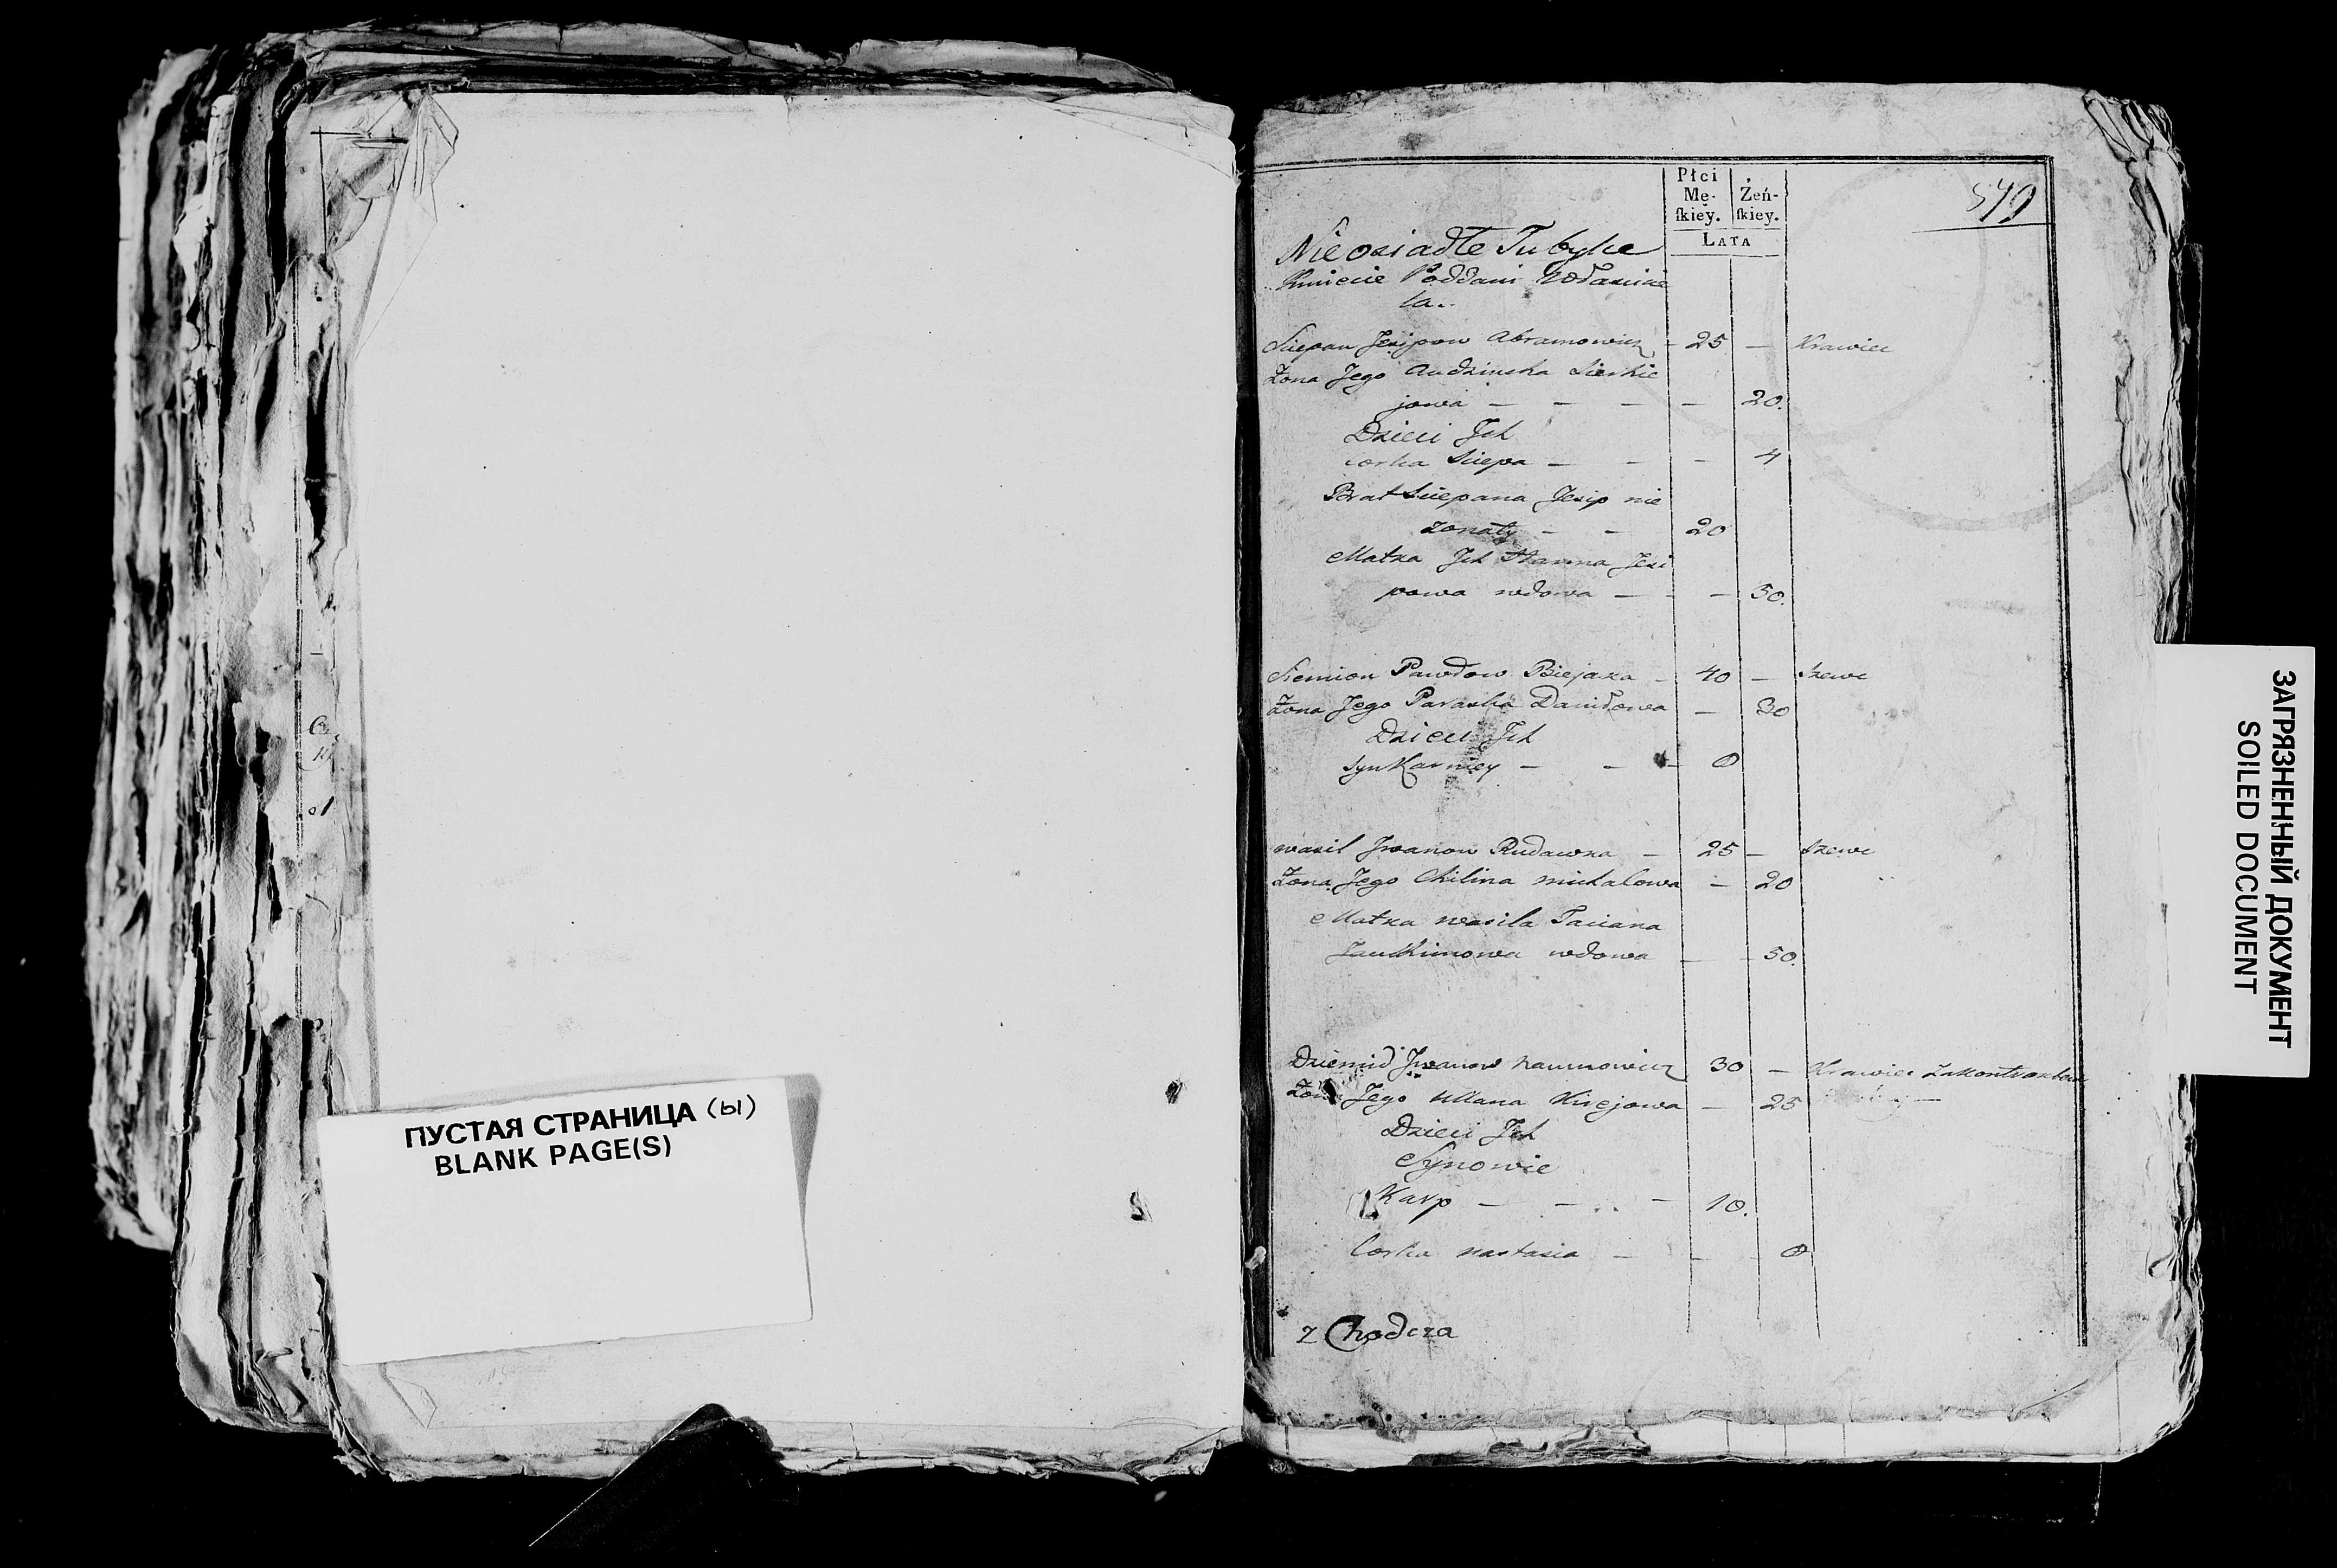 ПУСТАЯ СТРАНИЦА (Ы)
BLANK PAGE(S)
Płci
Mę-
ſkiey.
Żeń-
ſkiey.
LATA
549
Nieosiadłe Tubylce
Kmiecie Poddani Właścicie
la..
Sciepan Jesipow Abramowicz - 25 — Krawiec
Żona Jego Audziucha Sierhie
jowa — — — — 20.
Dzieci Jch
corka Sciepa — - - 4
Brat Sciepana Jesip nie
żonaty - - 20
Matka Jch Hanna Jesi
powa wdowa — - — 50.
Siemion Pawłow Biejaka - 40 — Szewc
Żona Jego Paraska Daniłowa — 30
Dzieci Jch
syn Karniey — - - 0
wasil Jwanow Rudawka — 25 — Szewc
Żona Jego Chilina michalowa — 20
Matka wasila Taciana
Jauchimowa wdowa — - 50.
Dziemid Jwanow naumowicz 30 — Krawiec
Żona Jego Ullana Kirejowa — 25
Dzieci Jch
Synowie
Karp — — - - 10.
Corka nastasia — - 0
z Chodcza
ЗАГРЯЗНЕННЫЙ ДОКУМЕНТ
SOILED DOCUMENT